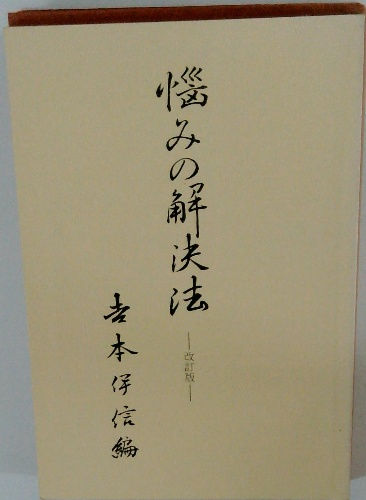 悩みの解決法
―改訂版―
吉本伊信編